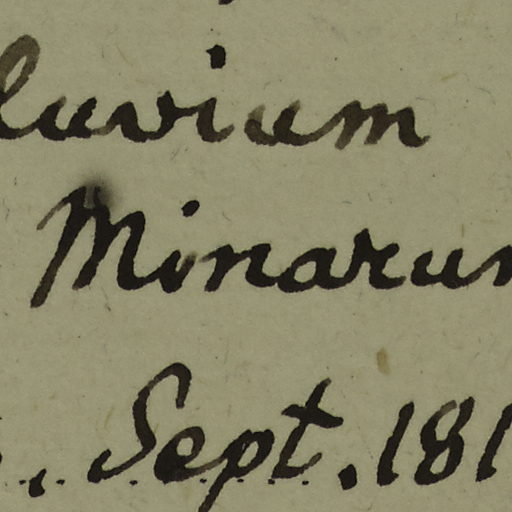 luvium
Minarum
., Sept. 181